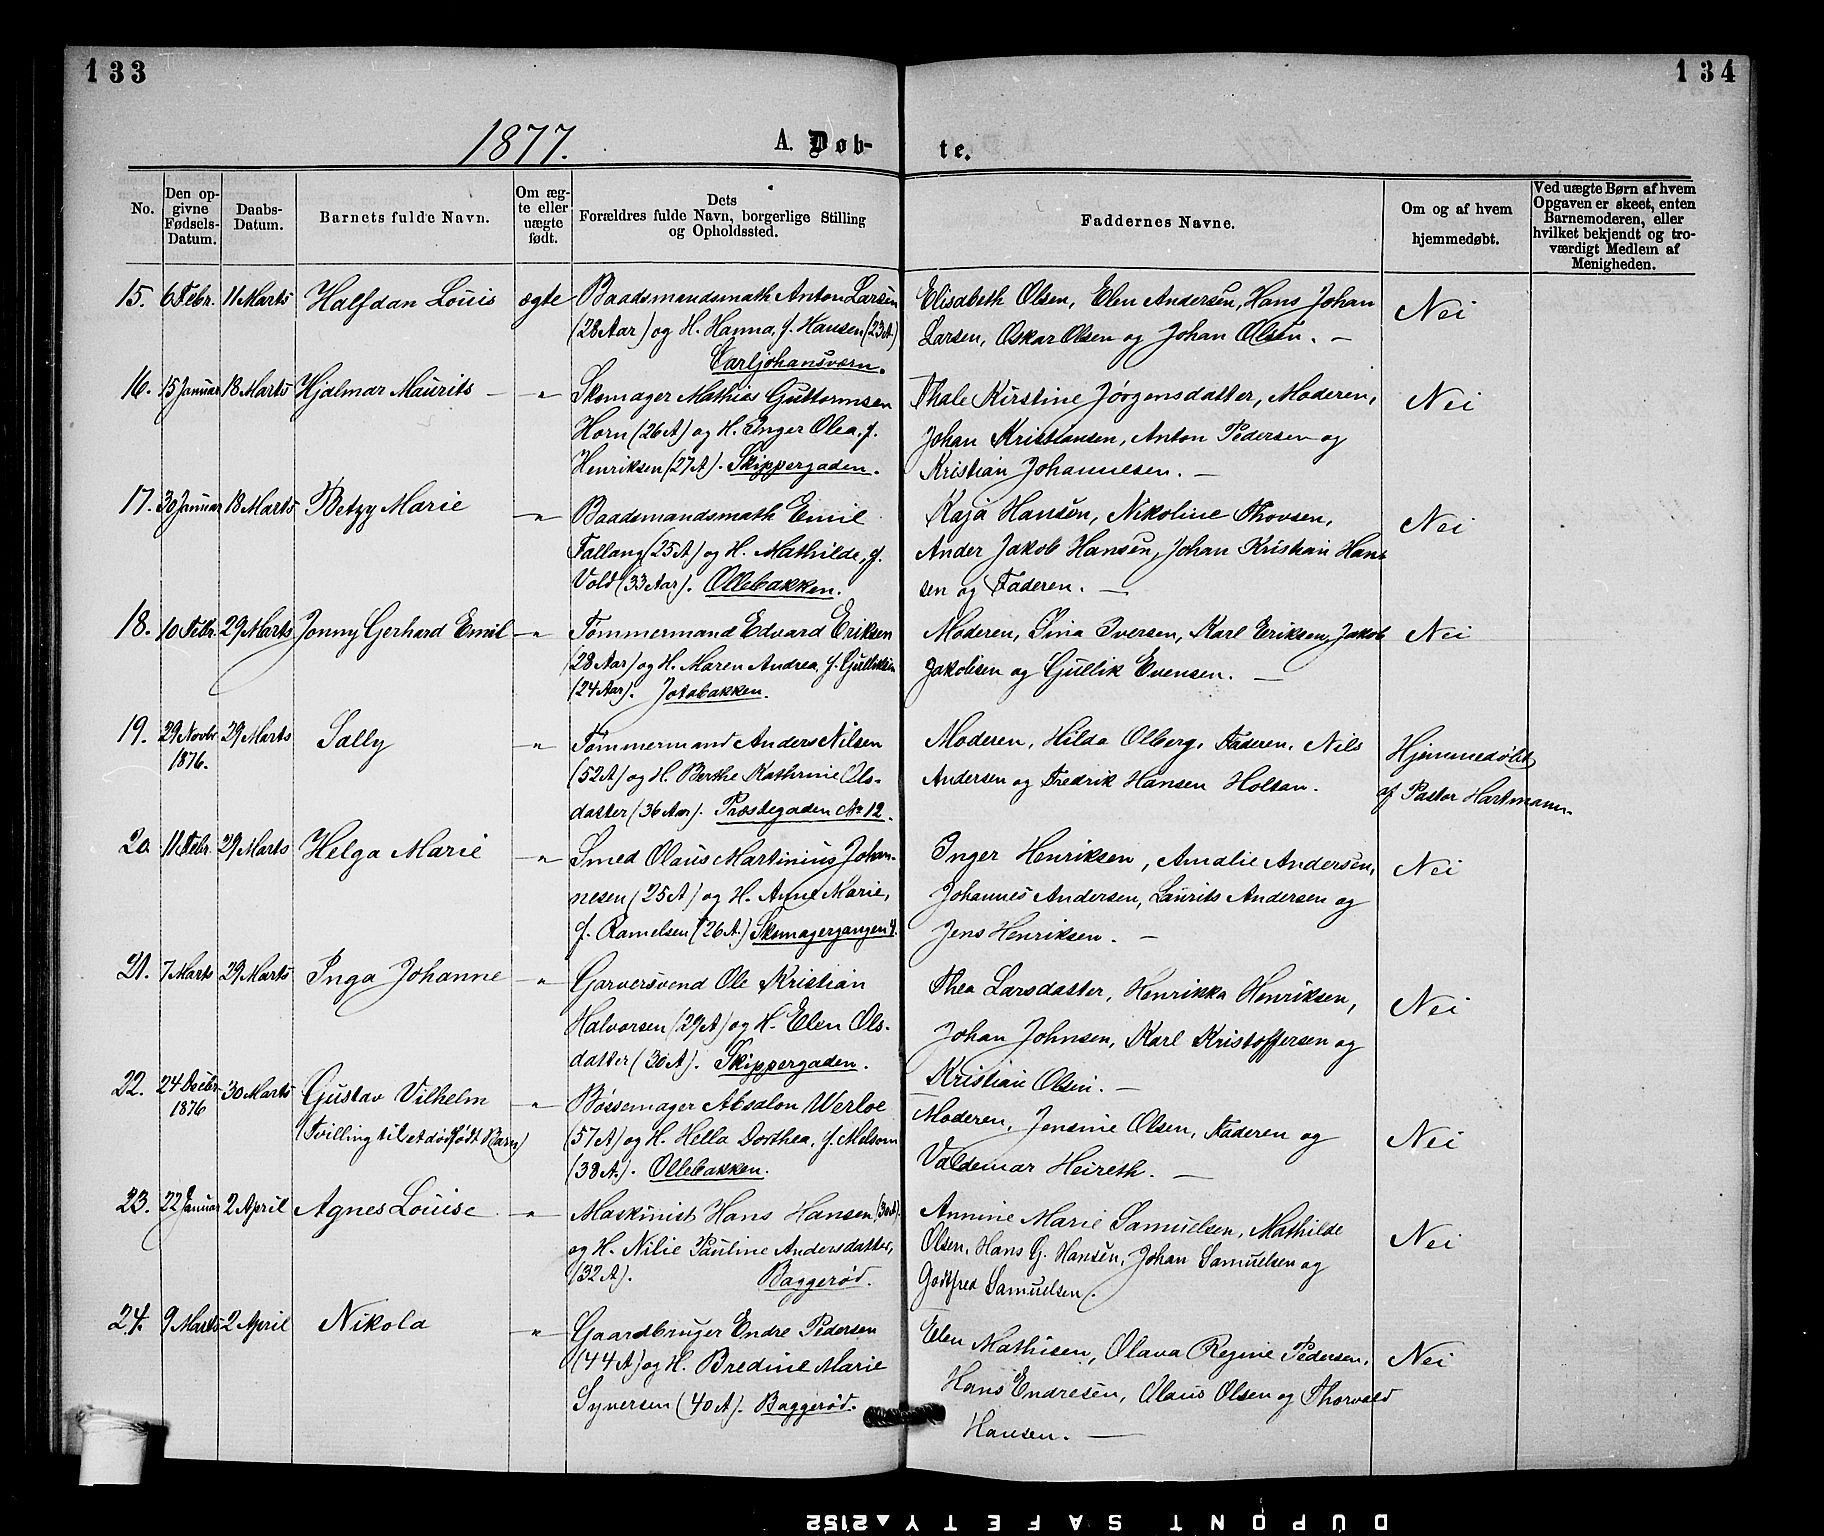 133
134
1877.
A. Døb-
te.
No.
Den op-
givne
Fødsels-
Datum.
Daabs-
Datum.
Barnets fulde Navn.
Om æg-
te eller
uægte
født.
Dets
Forældres fulde Navn, borgerlige Stilling
og Opholdssted.
Faddernes Navne.
Om og af hvem
hjemmedøbt.
Ved uægte Børn af hvem
Opgaven er skeet, enten
Barnemoderen, eller
hvilket bekjendt og tro-
værdigt Medlem af
Menigheden.
15. 6 Febr. 11 Marts Halfdan Louis ægte Baadsmandsmath Anton Larsen
(28 Aar) og H. Hanna, f. Hansen (23 A)
Carljohansværn.
Elisabeth Olsen, Elen Andersen, Hans Johan
Larsen, Oskar Olsen og Johan Olsen. —
Nei
16. 15 Januar 18 Marts Hjalmar Maurits — „ Skomager Mathias Guttormsen
Horn (26 A) og H. Inger Olea, f.
Henriksen (27 A). Skippergaden.
Thale Kirstine Jørgensdatter, Moderen,
Johan Kristiansen, Anton Pedersen og
Kristian Johannesen. —
Nei
17. 30 Januar 18 Marts Betzy Marie — „ Baadsmandsmath Emil
Fallang (25 A) og H. Mathilde, f.
Vold (33 Aar). Ollebakken.
Kaja Hansen, Nikoline Thovsen,
Ander Jakob Hansen, Johan Kristian Han-
sen og Faderen. —
Nei
18. 10 Febr. 29 Marts Jonny Gerhard Emil — „ Tømmermand Edvard Eriksen
(28 Aar) og H. Maren Andrea, f. Gulliksen
(24 Aar). Jotabakken.
Moderen, Sina Iversen, Karl Eriksen, Jakob
Jakobsen og Gullik Evensen. —
Nei
19. 29 Novbr 29 Marts Sally „ Tømmermand Anders Nilsen
1876.
(52 A) og H. Berthe Kathrine Ols-
datter (36 Aar). Præstegaden No 12.
Moderen, Hilda Olberg, Faderen, Nils
Andersen og Fredrik Hansen Holtan.
Hjemmedøbt
af Pastor Hartmann.
20 11 Febr. 29 Marts Helga Marie — „ Smed Olaus Martinius Johan-
nesen (25 A) og H. Anne Marie,
f. Ramelsen (26 A.) Skomagergangen 4.
Inger Henriksen, Amalie Andersen,
Johannes Andersen, Laurits Andersen og
Jens Henriksen. —
Nei
21. 7 Marts 29 Marts Inga Johanne — „ Garversvend Ole Kristian
Halvorsen (29 A) og H. Elen Ols-
datter (30 A). Skippergaden.
Thea Larsdatter, Henrikka Henriksen,
Johan Johnsen, Karl Kristoffersen og
Kristian Olsen. —
Nei
22. 24 Decbr 30 Marts Gustav Vilhelm — „ Bøssemager Absalon Werloe
1876
(Tvilling til et dødfødt Barn)
(57 A) og H. Hella Dorthea, f. Melsom
(38 A). Ollebakken.
Moderen, Jensine Olsen, Faderen og
Valdemar Heireth. —
Nei
23. 22 Januar 2 April Agnes Louise — „ Maskinist Hans Hansen (30 A).
og H. Nilie Pauline Andersdatter,
(32 A). Baggerød.
Annine Marie Samuelsen, Mathilde
Olsen, Hans G. Hansen, Johan Samuelsen og
Godtfred Samuelsen.
Nei
24. 9 Marts 2 April Nikola — „ Gaardbruger Endre Pedersen
(44 A) og H. Bredine Marie
Syversen (40 A). Baggerød.
Elen Mathisen, Olava Regine Pedersen,
Hans Endresen, Olaus Olsen og Thorvald
Hansen. —
Nei
DUPONT SAFETY ▲ 2152